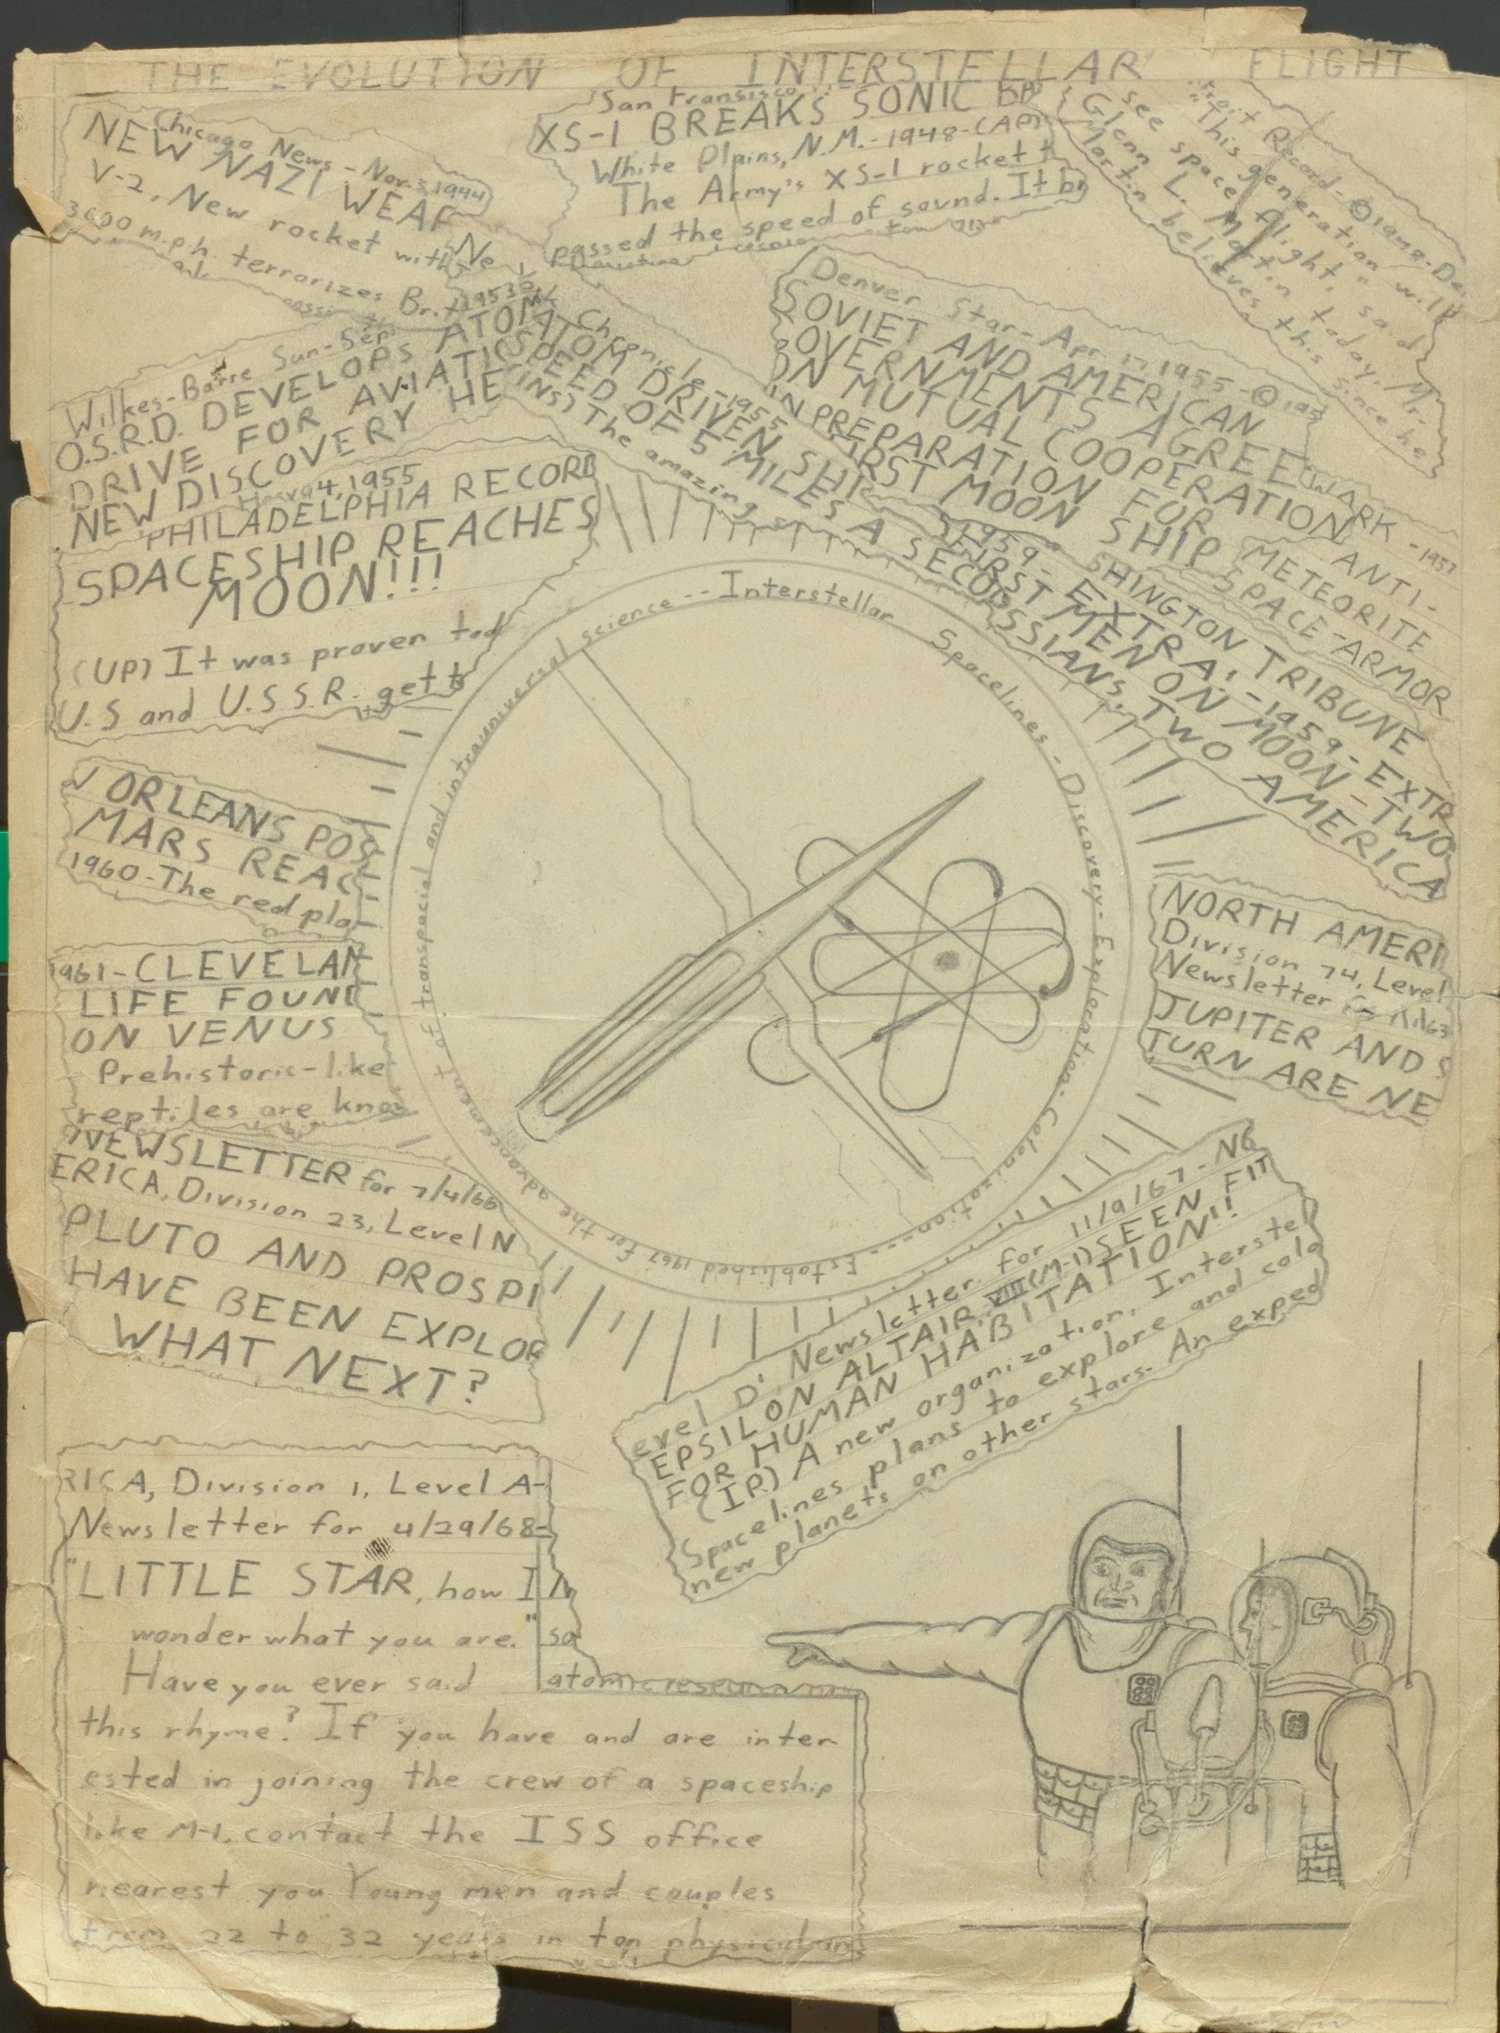 THE EVOLUTION OF INTERSTELLAR FLIGHT
Chicago News - Nov. 3, 1944
NEW NAZI WEAP
V-2, New rocket with
3600 m.p.h. terrorizes Brit
San Fransisco
XS-1 BREAKS SONIC BA
White Plains, N.M. - 1948 - (AP)
The Army's XS-1 rocket
passed the speed of sound. It br
Record - © 1949 - De
"This generation will
see space flight," said
Glenn L. Martin today. Mr.
Martin believes this since he
Wilkes-Barre Sun - Sep
O.S.R.D. DEVELOPS ATOM
DRIVE FOR AVIATI
NEW DISCOVERY HE
Chronicle - 1955
ATOM DRIVEN SHI
SPEED OF 5 MILES A SECO
(INS) The amazing
Denver Star - Apr. 17, 1955 - © 195
SOVIET AND AMERICAN
GOVERNMENTS AGREE
ON MUTUAL COOPERATION
IN PREPARATION FOR
FIRST MOON SHIP
4, 1955
PHILADELPHIA RECORD
SPACESHIP REACHES
MOON!!!
(UP) It was proven tod
U.S and U.S.S.R. get t
EWARK - 1957
ANTI-
METEORITE
SPACE-ARMOR
SHINGTON TRIBUNE
1959 - EXTRA! - 1959 - EXTR
FIRST MEN ON MOON - TWO
SSIANS, TWO AMERICA
W ORLEANS POS
MARS REAC
1960 - The red pla
1961 - CLEVELAN
LIFE FOUND
ON VENUS
Prehistoric-like
reptiles are know
NEWSLETTER for 7/4/66
ERICA, Division 23, Level N
PLUTO AND PROSPI
HAVE BEEN EXPLOR
WHAT NEXT?
Interstellar Spacelines - Discovery - Exploration - Colonization --- Established 1967 for the advancement of transpacial and intrauniversal science --
NORTH AMERI
Division 74, Level
Newsletter
JUPITER AND S
TURN ARE NE
evel D' Newsletter for 11/9/67 - NO
EPSILON ALTAIR VIII (M-1) SEEN FIT
FOR HUMAN HABITATION!!
(IP) A new organization, Interstel
Spacelines plans to explore and colo
new planets on other stars. An exped
RICA, Division 1, Level A-
Newsletter for 4/29/68-
"LITTLE STAR, how I
wonder what you are." so
Have you ever said
atomic
this rhyme? If you have and are inter
ested in joining the crew of a spaceship
like M-1, contact the ISS office
nearest you Young men and couples
from 22 to 32 years in top physical